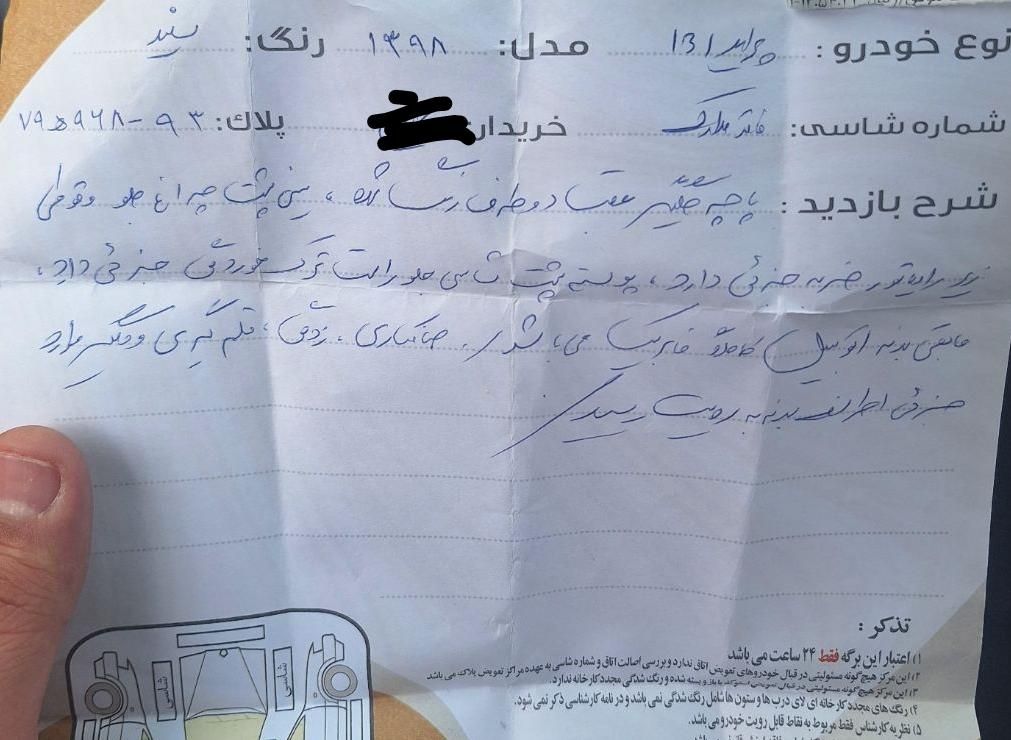 نوع خودرو: پراید 131 مدل: ۱۳۹۸ رنگ: سفید
شماره شاسی: فاقد مدارک خریدار: پلاک: ۷۹ ه ۹۶۸ - ۹۳
شرح بازدید: پاچه عقب دو طرف رنگ شده، سینی پشت چراغ جلو و قوطی
زیر رادیاتور ضربه جزئی دارد، پوسته پشت شاسی جلو راست ترک خوردگی جزئی دارد،
مابقی بدنه اتومبیل کاملاً فابریک می باشد. صافکاری، زدگی، قلم گیری و دیگر موارد
جزئی اطراف بدنه به رویت رسید
شاسی
شاسی
تذکر:
۱) اعتبار این برگه فقط ۲۴ ساعت می باشد
۲) این مرکز هیچ گونه مسئولیتی در قبال خودروهای تعویض اتاق ندارد و بررسی اصالت اتاق و شماره شاسی به عهده مراکز تعویض پلاک می باشد
۳) این مرکز هیچ گونه مسئولیتی در قبال باز و بسته شده و رنگ شدگی مجدد کارخانه ندارد.
۴) رنگ های مجدد کارخانه ای لای درب ها و ستون ها شامل رنگ شدگی نمی باشد و در نامه کارشناسی ذکر نمی شود.
۵) نظریه کارشناس فقط مربوط به نقاط قابل رویت خودرو می باشد.